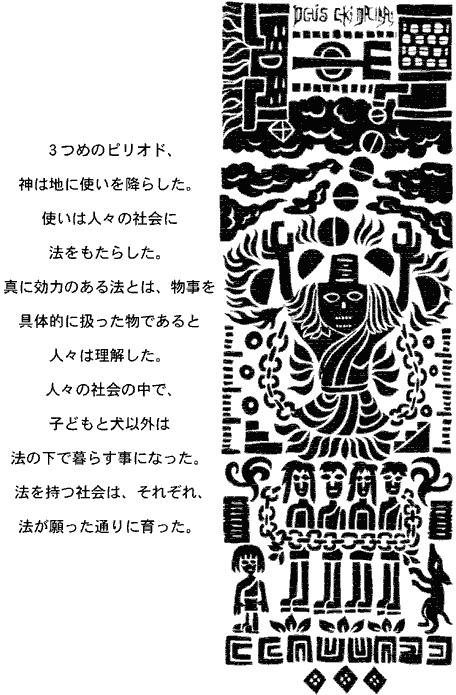 3つめのピリオド、
神は地に使いを降らした。
使いは人々の社会に
法をもたらした。
真に効力のある法とは、物事を
具体的に扱った物であると
人々は理解した。
人々の社会の中で、
子どもと犬以外は
法の下で暮らす事になった。
法を持つ社会は、それぞれ、
法が願った通りに育った。